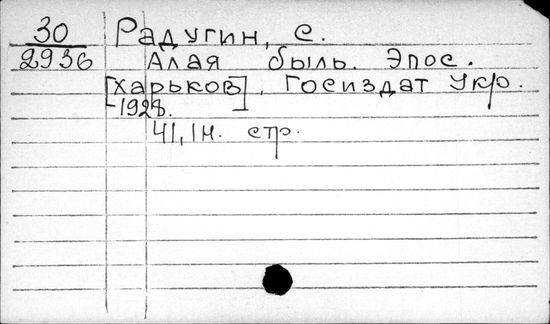 30 Радугин, С.
2936 Алая быль. Эпос.
[Харьков], Госиздат Укр.
1928.
41, 1н. стр.